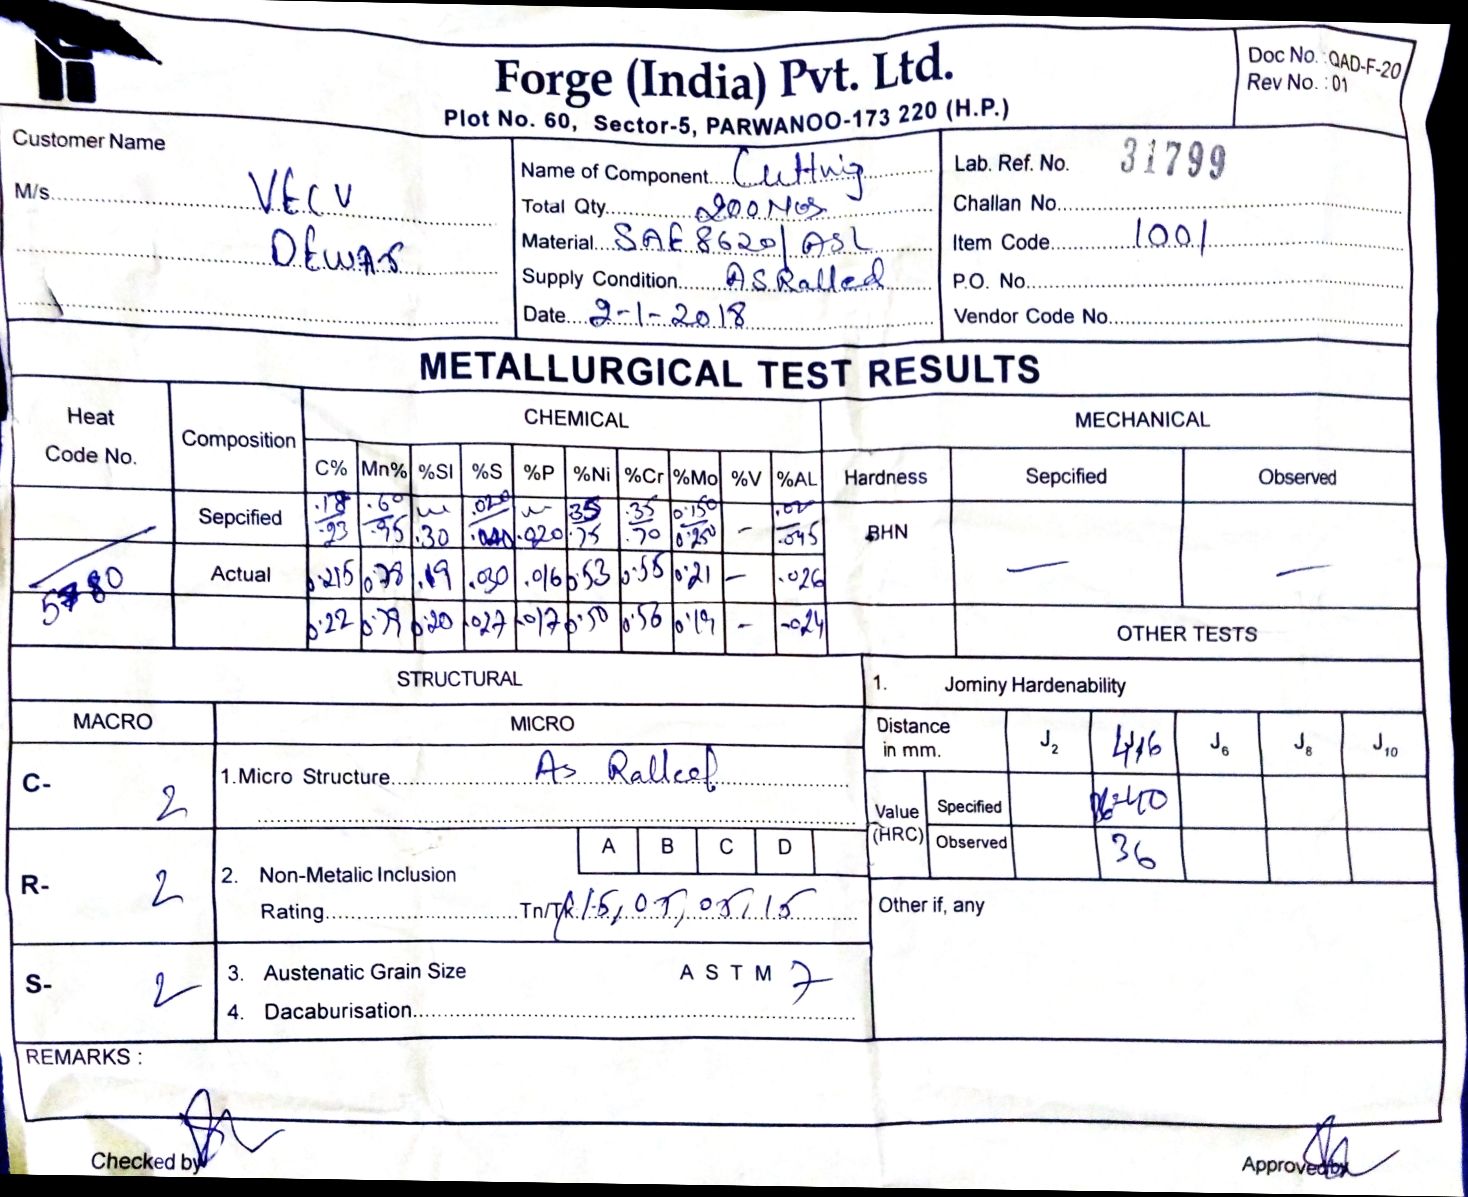 Forge (India) Pvt. Ltd.
Plot No. 60, Sector-5, PARWANOO-173 220 (H.P.)
Doc No. : QAD-F-20
Rev No. : 01
Customer Name
M/s. VECV
DEWAS
Name of Component Cutting
Total Qty. 200 Nos
Material SAE 8620/ ASL
Supply Condition AS Ralled
Date 2-1-2018
Lab. Ref. No. 31799
Challan No.
Item Code 1001
P.O. No.
Vendor Code No.
METALLURGICAL TEST RESULTS
Heat Code No. Composition CHEMICAL MECHANICAL
C% Mn% %SI %S %P %Ni %Cr %Mo %V %AL Hardness Sepcified Observed
Sepcified .18 .60 .020 35 .35 0.150
.23 .95 .30 .020 .75 .70 0.250 - .045 BHN
Actual 0.215 0.78 .19 .030 .016 0.53 0.55 0.21 - .026
5780
0.22 0.79 0.20 .027 .017 0.50 0.56 0.19 - .024
OTHER TESTS
STRUCTURAL
MACRO MICRO
C- 2
R- 2
S- 2
1.Micro Structure As Ralled
2. Non-Metalic Inclusion A B C D
Rating Tn/Tk 1.5, 05, 05, 15
3. Austenatic Grain Size ASTM 7
4. Dacaburisation
1. Jominy Hardenability
Distance in mm. J2 J6 J8 J10
Value (HRC) Specified
Observed 36
Other if, any
REMARKS :
Checked by
Approved by